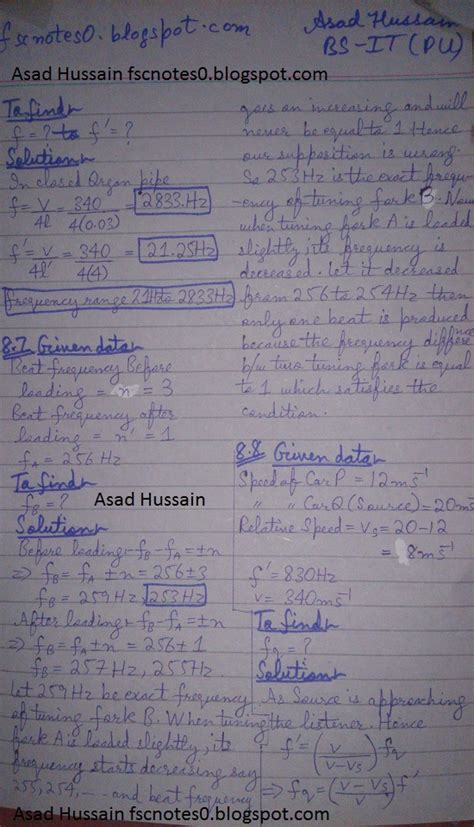 fscnotes0.blogspot.com
Asad Hussain
BS-IT (PU)
Asad Hussain fscnotes0.blogspot.com
To find
f = ? to f' = ?
Solution
In closed Organ pipe
f = V/4l = 340/4(0.03) = 2833.Hz
f' = V/4l' = 340/4(4) = 21.25Hz
frequency range 21Hz to 2833Hz
8.7 Given data
Beat frequency Before
loading = n = 3
Beat frequency after
loading = n' = 1
fA = 256 Hz
To find
fB = ?
Asad Hussain
Solution
Before loading fB - fA = ±n
⇒ fB = fA ± n = 256 ± 3
fB = 259 Hz, 253 Hz
After loading fB - fA = ±n
⇒ fB = fA ± n = 256 ± 1
fB = 257 Hz, 255 Hz
Let 259 Hz be exact frequency
of tuning fork B. When tuning
fork A is loaded slightly, its
frequency starts decreasing say
255, 254, --- and beat frequency
goes on increasing and will
never be equal to 1 Hence
our supposition is wrong.
So 253 Hz is the exact frequ-
ency of tuning fork B. Now
when tuning fork A is loaded
slightly its frequency is
decreased. Let it decreased
from 256 to 254 Hz then
only one beat is produced
because the frequency difference
b/w two tuning fork is equal
to 1 which satisfies the
condition.
8.8 Given data
Speed of Car P = 12ms⁻¹
" " Car Q (Source) = 20ms
Relative Speed = Vs = 20-12
= 8ms⁻¹
f' = 830Hz
v = 340ms⁻¹
To find
fq = ?
Solution
As Source is approaching
the listener. Hence
f' = (V/V-Vs) fq
⇒ fq = (V-Vs/V) f'
Asad Hussain fscnotes0.blogspot.com